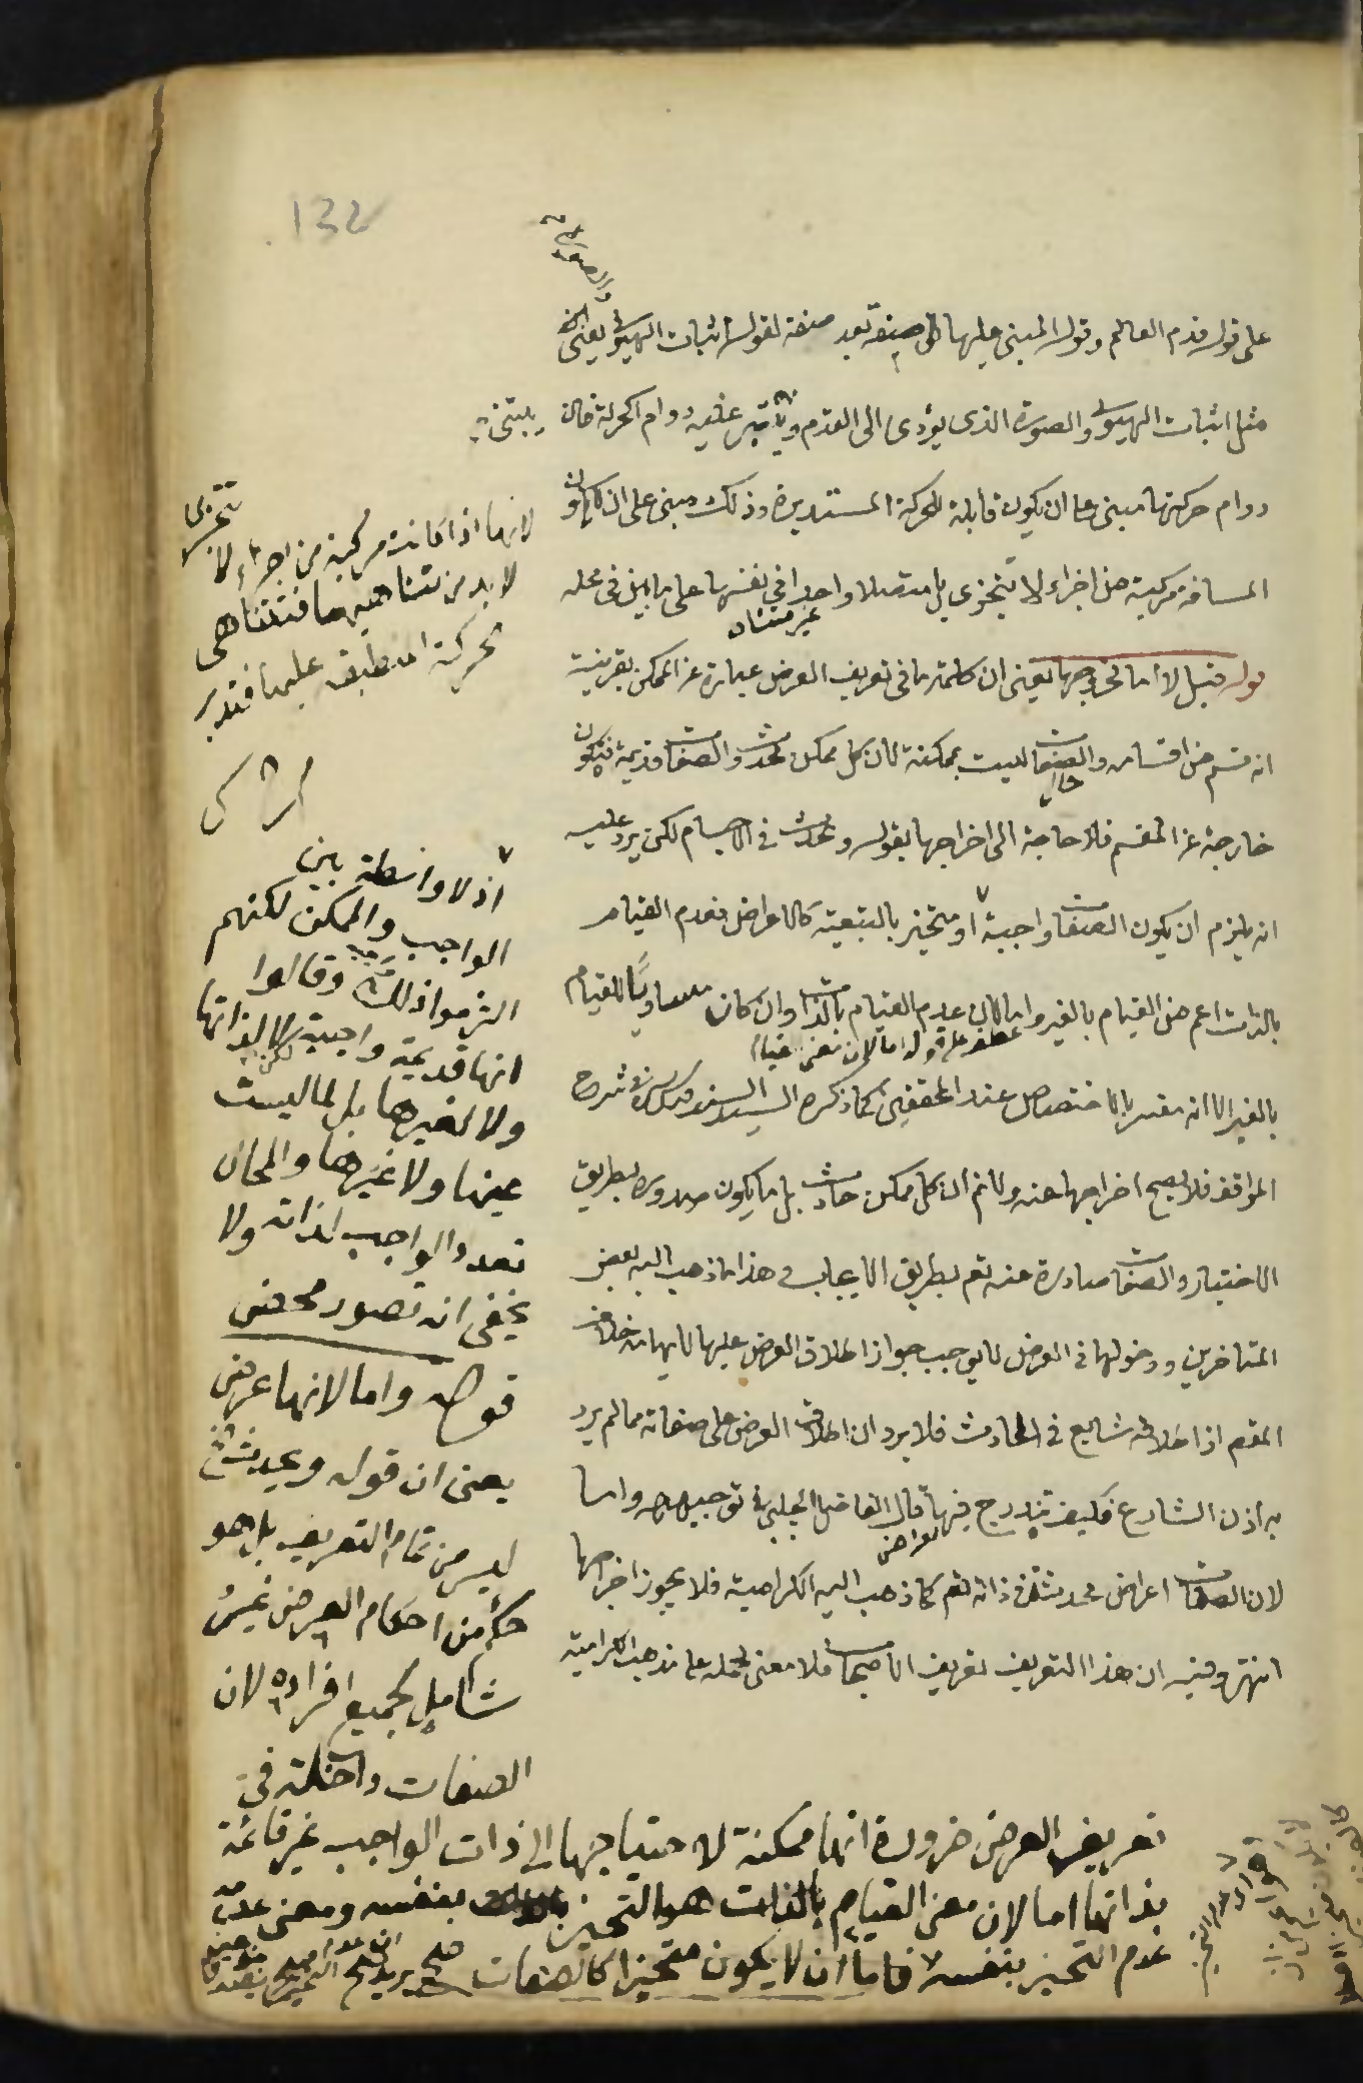 132
على قوله قدم العالم وقوله المبنى عليها صفة بعد صفة لقوله اثبات الهيولى يعنى
مثل اثبات الهيولى والصورة الذى يؤدى الى القدم ويبتنى عليه دوام الحركة فان
دوام حركتها مبنى على ان يكون قابلة للحركة المستديرة وذلك مبنى على ان لا يكون
المسافة مركبة من اجزاء لا تتجزى بل متصلا واحدا فى نفسها على ما بين فى محله
غير متناه
قوله قيل لا اما لخروجها يعنى ان كلمة ما فى تعريف العرض عبارة عن الممكن بقرينة
انه قسم من اقسامه والصفات ليست بممكنة لان كل ممكن محدث والصفات قديمة فتكون
خارجة عن المقسم فلا حاجة الى اخراجها بقوله ويحدث فى الاجسام لكن يرد عليه
انه يلزم ان يكون الصفات واجبة او متحيز بالتبعية كالاعراض فعدم القيام
بالذات اعم من القيام بالغير واما لان عدم القيام بالذات وان كان مساويا للقيام
عطف على قوله اما لان معنى القيام
بالغير الا انه مفسر بالاختصاص عند المحققين كما ذكره السيد السند قدس سره فى شرح
المواقف فلا يصح اخراجها عنه ولا نم ان كل ممكن حادث بل ما يكون صدوره بطريق
الاختيار والصفات صادرة عنه تع بطريق الايجاب هذا ما ذهب اليه بعض
المتاخرين ودخولها فى العرض لا يوجب جواز اطلاق العرض عليها لايهامه خلاف
المقصم اذ اطلاقه شايع فى الحادث فلا يرد ان اطلاق العرض على صفاته مما لم يرد
به اذن الشارع فكيف تندرج فيها قال الفاضل الچلبى فى توجيهه واما
لان الصفات اعراض محدثة فى ذاته تع كما ذهب اليه الكرامية فلا يجوز اخراجها
انتهى وفيه ان هذا التعريف تعريف الاصحاب فلا معنى لحمله على مذهب الكرامية
يبتنى
لانها اذا كانت مركبة من اجزاء لا تتجزى
لا بد من تناهيها فتتناهى
الحركة المنطبقة عليها فتدبر
اذ لا واسطة بين
الواجب والممكن لكنهم
التزموا ذلك وقالوا
انها قديمة واجبة لا لذاتها
ولا لغيرها بل لما ليست
عينها ولا غيرها والمحال
تعدد الواجب لذاته ولا
يخفى انه تصور محض
قوله واما لانها عرض
يعنى ان قوله ويحدث الخ
ليس من تمام التعريف بل هو
حكم من احكام العرض غير
شامل لجميع افراده لان
الصفات داخلة فى
تعريف العرض ضرورة انها ممكنة لاحتياجها الى ذات الواجب غير قائمة
بذاتها اما لان معنى القيام بالذات هو التحيز بنفسه ومعنى عدمه
عدم التحيز بنفسه فاما ان لا يكون متحيزا كالصفات